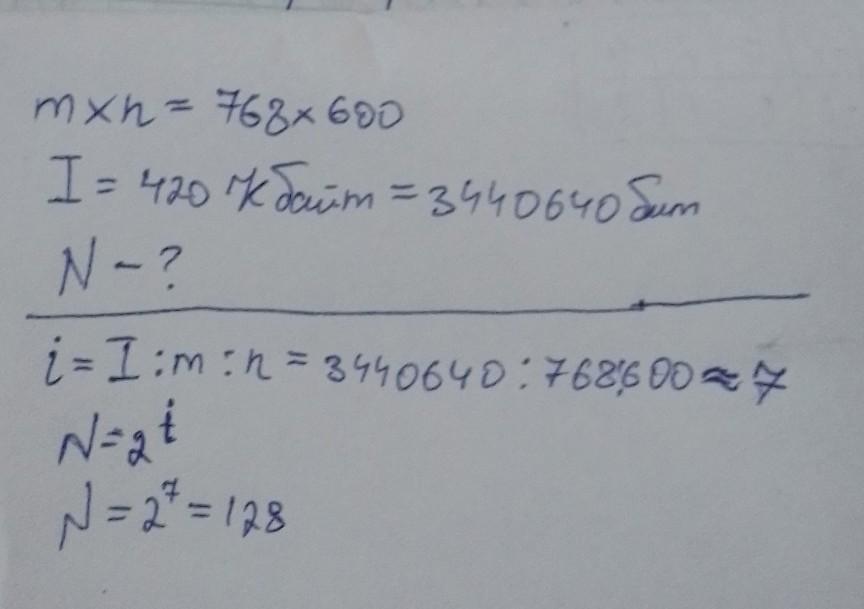 m×n = 768×600
I = 420 Кбайт = 3440640 бит
N – ?
i = I : m : n = 3440640 : 768:600 ≈ 7
N = 2^i
N = 2^7 = 128